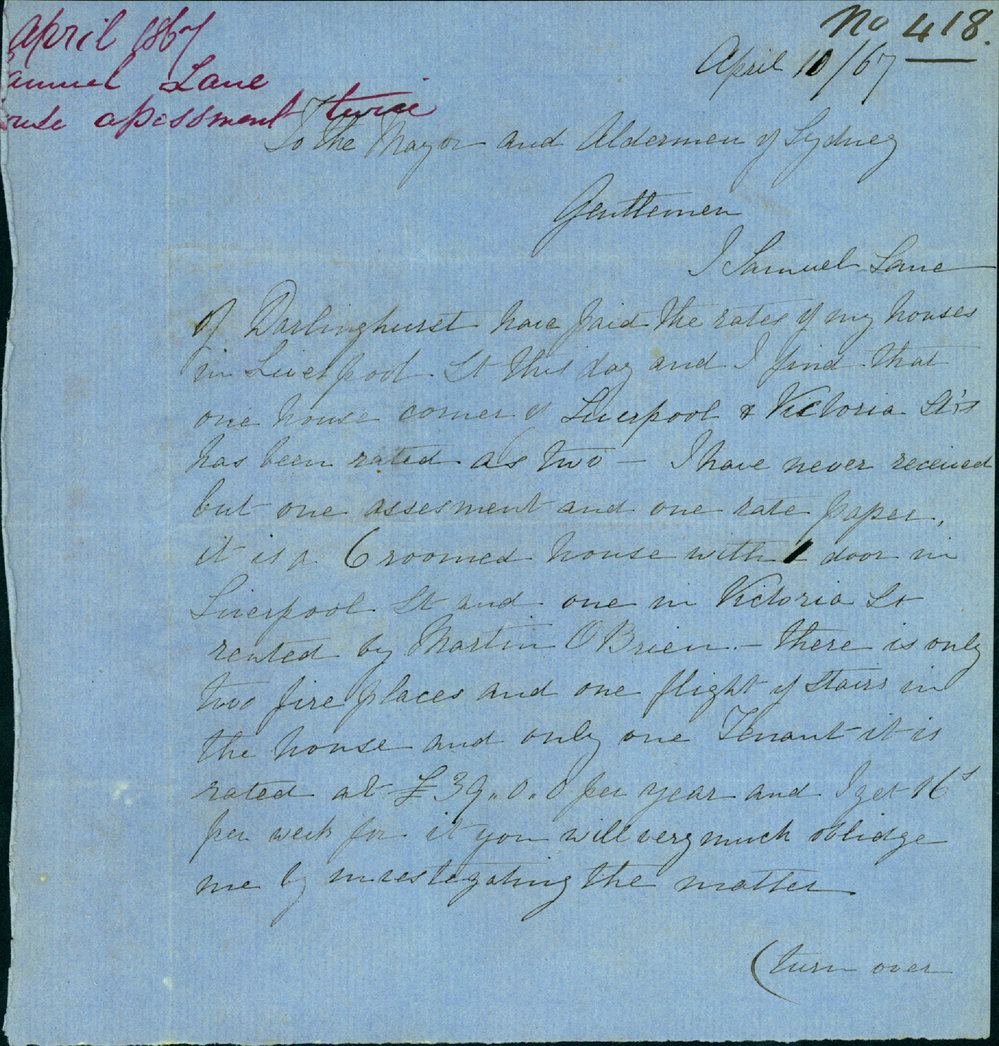 April 1867
amuel Lane
ouse assessment twice
No 418.
April 10/67
To the Mayor and Aldermen of Sydney
Gentlemen
I Samuel Lane
of Darlinghurst have paid the rates of my houses
in Liverpool St this day and I find that
one house corner of Liverpool & Victoria St's
has been rated as two – I have never received
but one assesment and one rate paper,
it is a 6 roomed house with 1 door in
Liverpool St and one in Victoria St
rented by Martin O'Brien – there is only
two fire places and one flight of stairs in
the house and only one Tenant it is
rated at £39.0.0 per year and I get 16s
per week for it you will very much oblidge
me by investegating the matter
(turn over